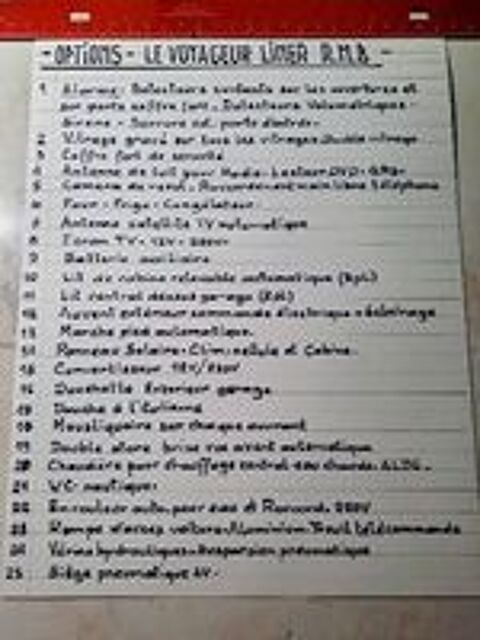 - OPTIONS - LE VOYAGEUR LINER R.M.B. -
1 Alarme: Detecteurs sur les ouvertures et
sur porte coffre fort. Detecteurs Volumetriques -
Sirene - Serrure porte
2 Vitrage gravé sur tous les vitrages. Double vitrage
3 Coffre fort de securité
4 Antenne de toit pour Radio - Lecteur DVD - GPS -
5 Camera de recul - main libre téléphone
6 Four - Frigo - Congelateur
7 Antenne satellite TV automatique
8 Ecran TV - 12V - 220V -
9 Batterie auxiliaire
10 Lit de cabine relevable automatique (2pl)
11 Lit central dessus garage (2pl)
12 Auvent extérieur commande électrique + éclairage
13 Marche pied automatique.
14 Panneau Solaire - Clim: cellule et Cabine.
15 Convertisseur 12V/220V
16 Douchette Exterieur garage
17 Douche à l'Italienne
18 Moustiquaire sur chaque ouvrant
19 Double store avant automatique
20 Chaudiere pour chauffage central eau chaude. ALDE -
21 WC nautique:
22 Enrouleur auto. pour eau et Raccord. 220V
23 Rampe d'acces voiture Aluminium Treuil télécommande
24 Vérins hydrauliques - Suspension pneumatique
25 Siège pneumatique AV -